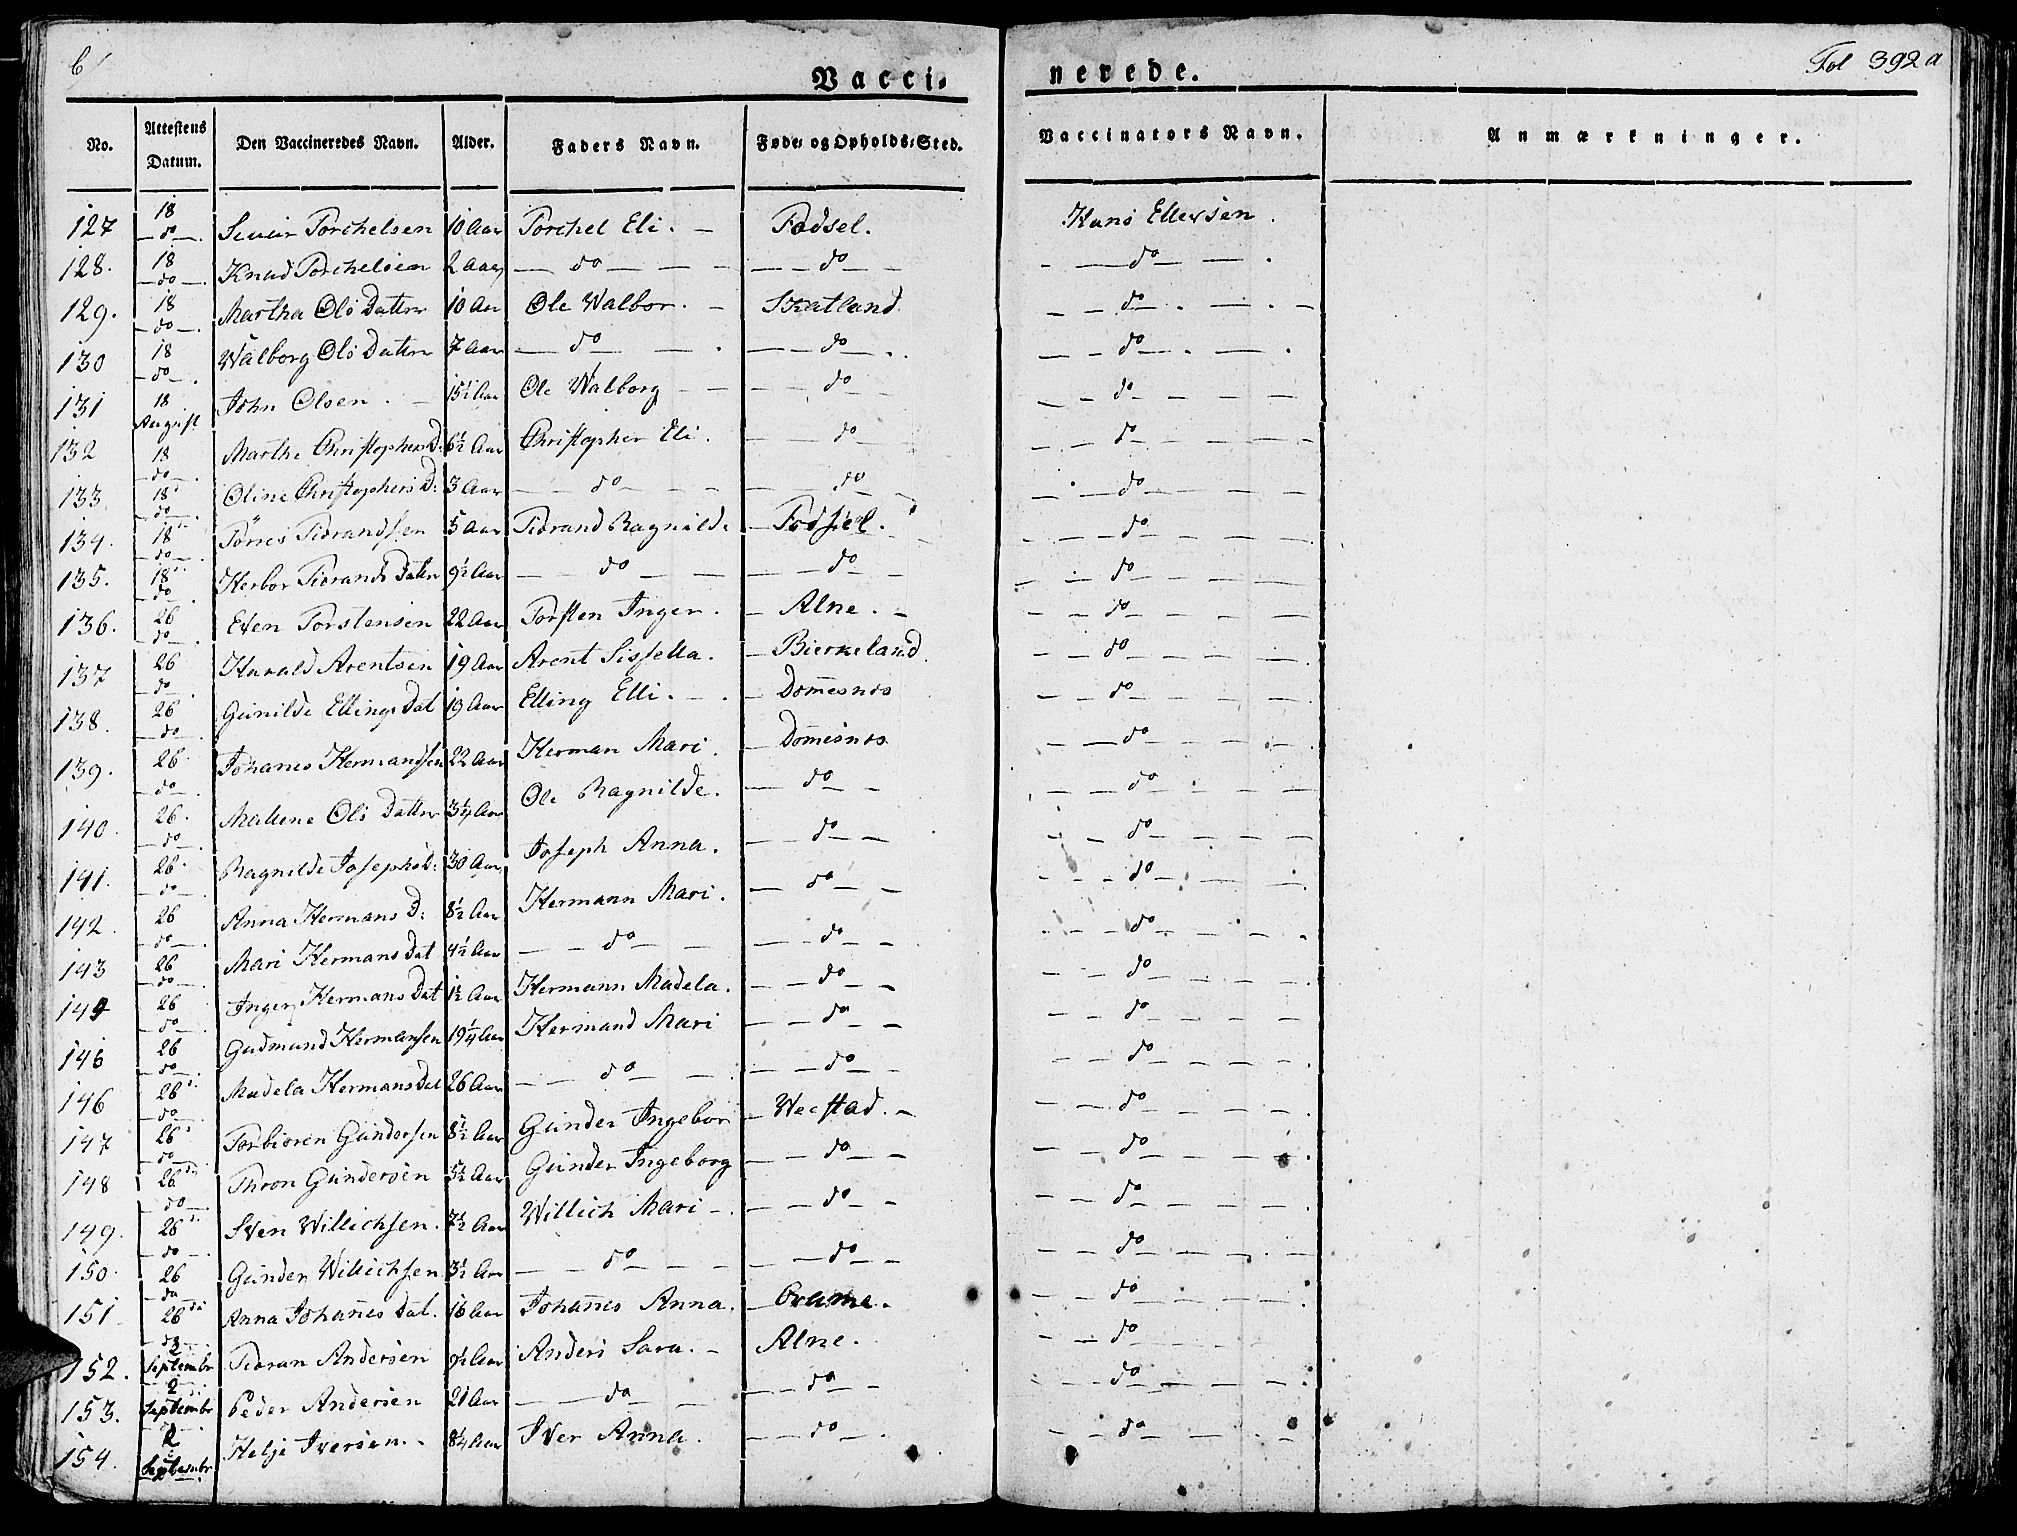 6/
Vacci-
nerede.
Fol 392a
No.
Attestens Datum.
Den Vaccineredes Navn.
Alder.
Faders Navn.
Føde- og Opholds-Sted.
Vaccinators Navn.
Anmærkninger.
127 18 do Torchelsen 10 Aar Torchel Eli. Fodsel. Hans Ellersen
128. 18 do Knud Torchelsen 2 Aar do do do
129. 18 do Martha Ols Datter 10 Aar Ole Walbor. Skatland do
130 18 do Walborg Ols Datter 7 Aar do do do
131 18 August John Olsen. 15½ Aar Ole Walborg do do
132 18 do Marthe Christophers D. 6½ Aar Christopher Eli. do do
133 18 do Oline Christophers D: 3 Aar do do do
134. 18 do Torris Tiorandsen 5 Aar Tiorand Ragnilde Fodsel. do
135. 18 do Herbor Tiorands Datter 9½ Aar do do do
136. 26 do Even Torstensen 22 Aar Torsten Inger. Alne. do
137 26 do Harald Arentsen 19 Aar Arent Sissella. Bierkeland do
138. 26 do Gunilde Ellings Dat 19 Aar Elling Elli. Domesnes do
139. 26 do Johanes Hermandsen 22 Aar Herman Mari. Domesnes do
140. 26. do Mallene Ols Datter 3¼ Aar Ole Ragnilde. do do
141. 26. do Ragnilde Josephs D: 30 Aar Joseph Anna. do do
142. 26 do Anna Hermans D: 8½ Aar Hermann Mari. do do
143 26 do Mari Hermans Dat 4½ Aar do do do
144 26 do Inger Hermans Dat 1½ Aar Hermann Madela. do do
145 26 do Gudmund Hermansen 19¼ Aar Hermand Mari do do
146 26 do Madela Hermans Dat 26 Aar do do do
147 26 do Torbioren Gundersen 8½ Aar Gunder Ingebor Weestad. do
148 26 do Thron Gundersen 5½ Aar Gunder Ingeborg do do
149. 26 do Sven Willichsen. 7½ Aar Willich Mari do do
150. 26 do Gunder Willichsen 3½ Aar do do do
151. 26 do Anna Johanes Dat. 16 Aar Johanes Anna. do
152. 2 Septembr Tioran Andersen 9½ Aar Anders Sara. Alne. do
153. 2 Septembr Peder Andersen 21 Aar do do do
154. 2 Septembr Helje Iversen. 8¼ Aar Iver Anna. do do